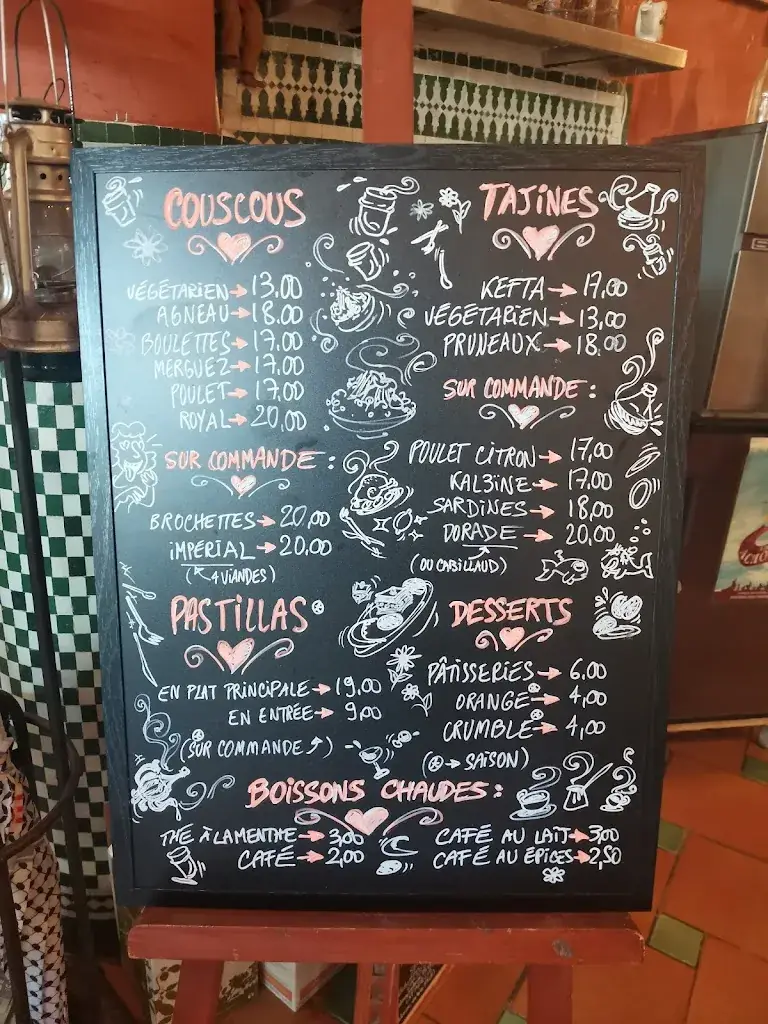 COUSCOUS
VÉGÉTARIEN → 13,00
AGNEAU → 18.00
BOULETTES → 17.00
MERGUEZ → 17.00
POULET → 17,00
ROYAL → 20,00
SUR COMMANDE :
BROCHETTES → 20,00
IMPÉRIAL → 20.00
(4 VIANDES)
TAJINES
KEFTA → 17,00
VÉGÉTARIEN → 13,00
PRUNEAUX → 18.00
SUR COMMANDE :
POULET CITRON → 17,00
KAL3INE → 17.00
SARDINES → 18,00
DORADE → 20,00
(OU CABILLAUD)
PASTILLAS
EN PLAT PRINCIPALE → 19,00
EN ENTRÉE → 9,00
(SUR COMMANDE)
DESSERTS
PÂTISSERIES → 6.00
ORANGE → 4,00
CRUMBLE → 4,00
(→ SAISON)
BOISSONS CHAUDES :
THÉ À LA MENTHE → 3,00
CAFÉ → 2,00
CAFÉ AU LAIT → 3,00
CAFÉ AU ÉPICES → 2,50